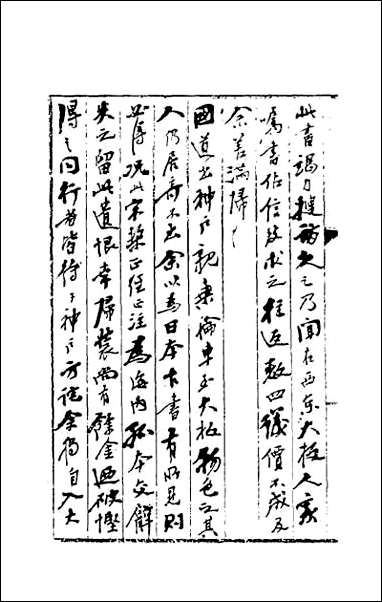 此書竭力搜訪久之乃聞在西京大板人家
囑書估信致求之往返數四議價不成及
余差滿歸
國道出神戶親乘輪車至大板物色之其
人仍居奇不出余以為日本古書有所見則
必得況此宋槧正經正注為海內孤本交臂
失之留此遺恨幸歸裝尚有餘金迺破慳
得之同行者皆待于神戶方詫余獨自入大